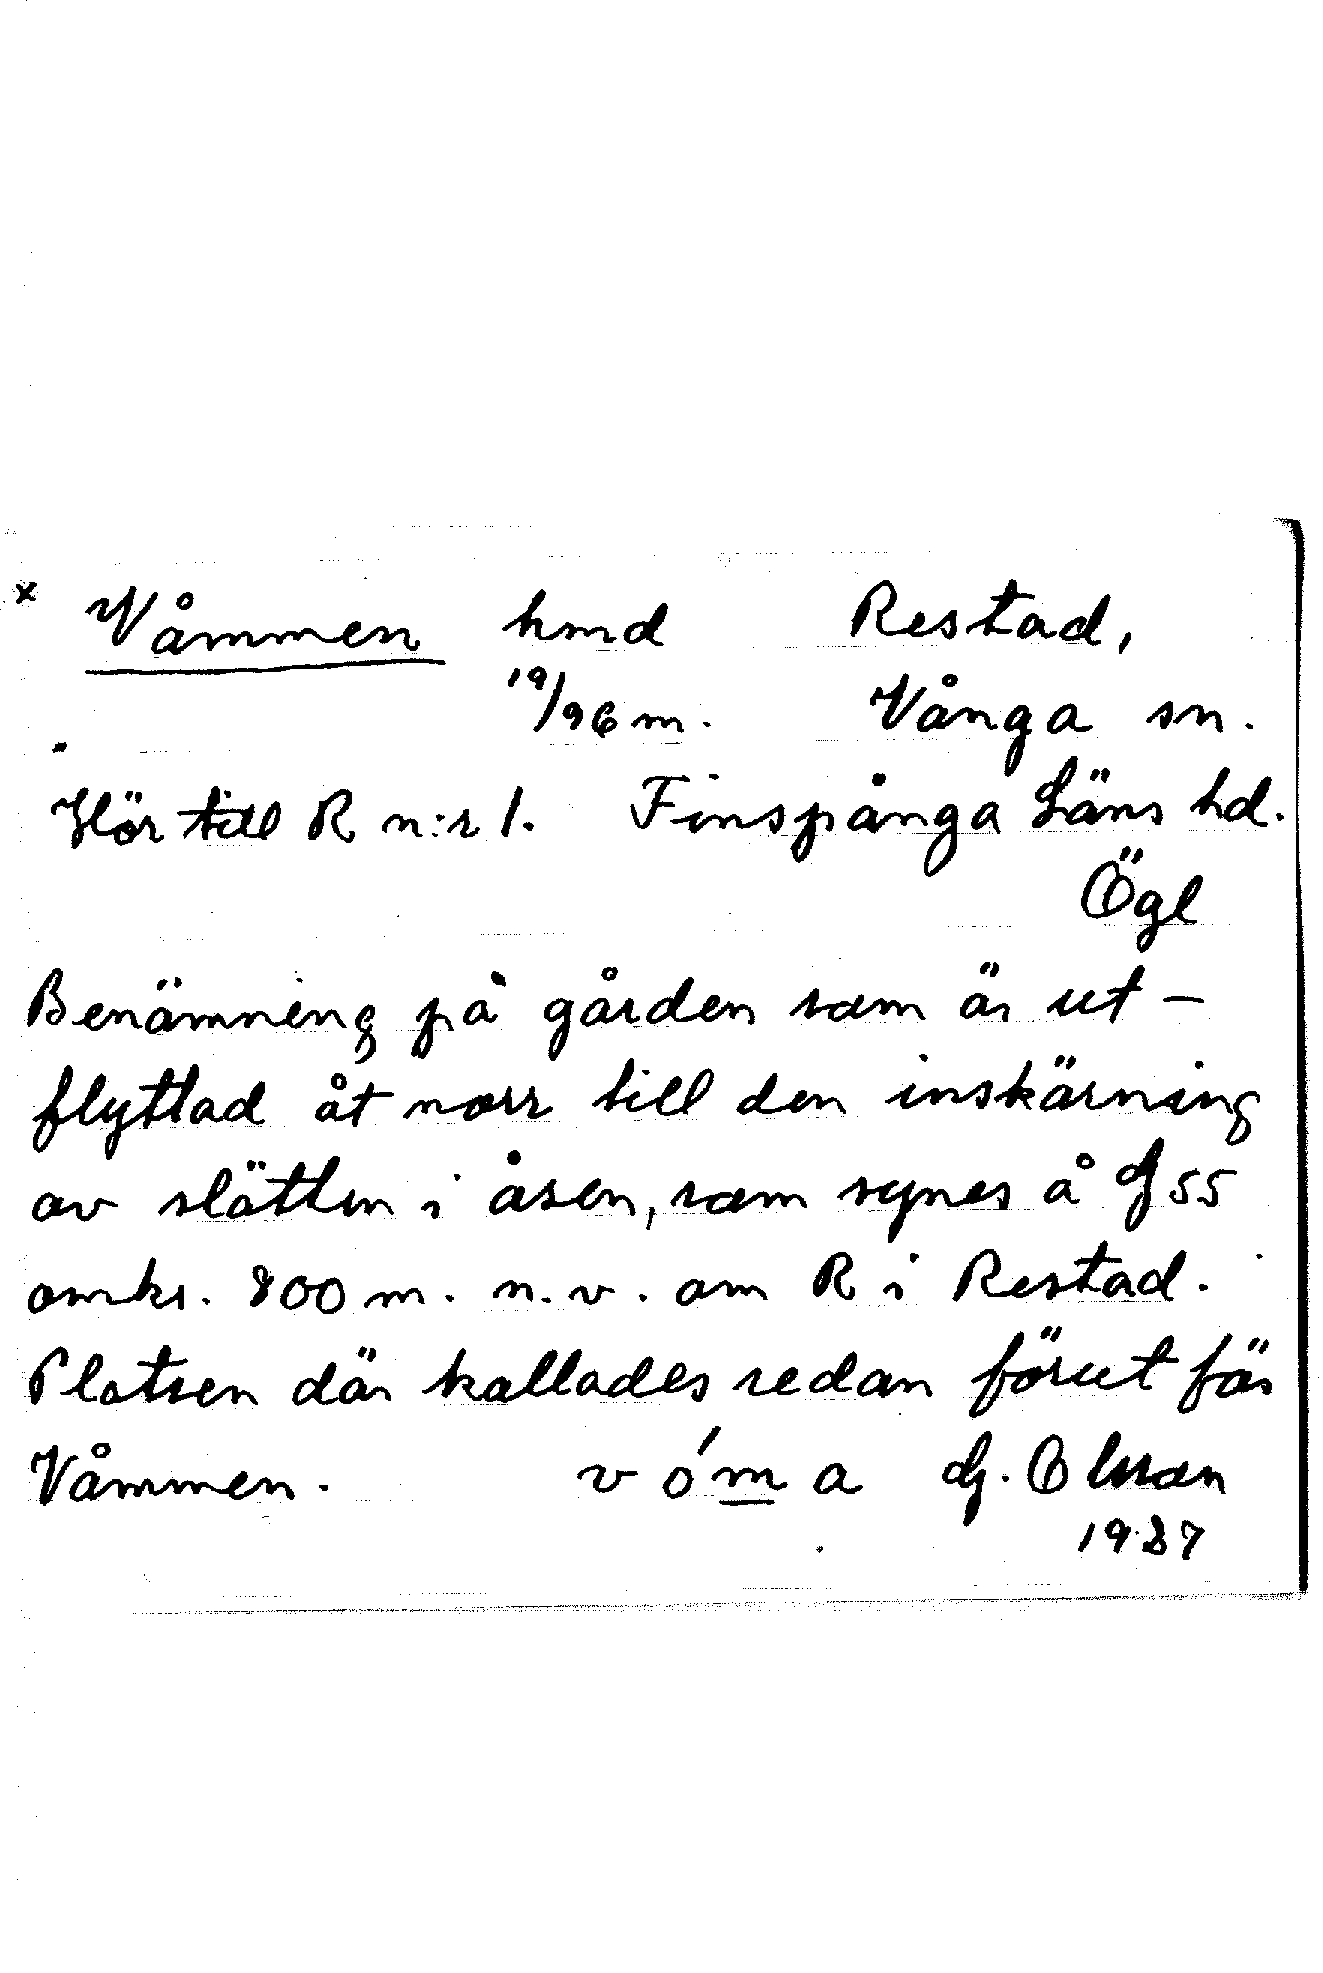 x Våmmen hmd Restad,
19/96 m. Vånga sn.
Hör till R n:r 1. Finspånga Läns hd.
Ögl
Benämning på gården som är ut-
flyttad åt norr till den inskärning
av slätten i åsen, som synes å G 55
omkr. 800 m. n.v. om R i Restad.
Platsen där kallades redan förut för
Våmmen. vó'ma G. Olsson
1937